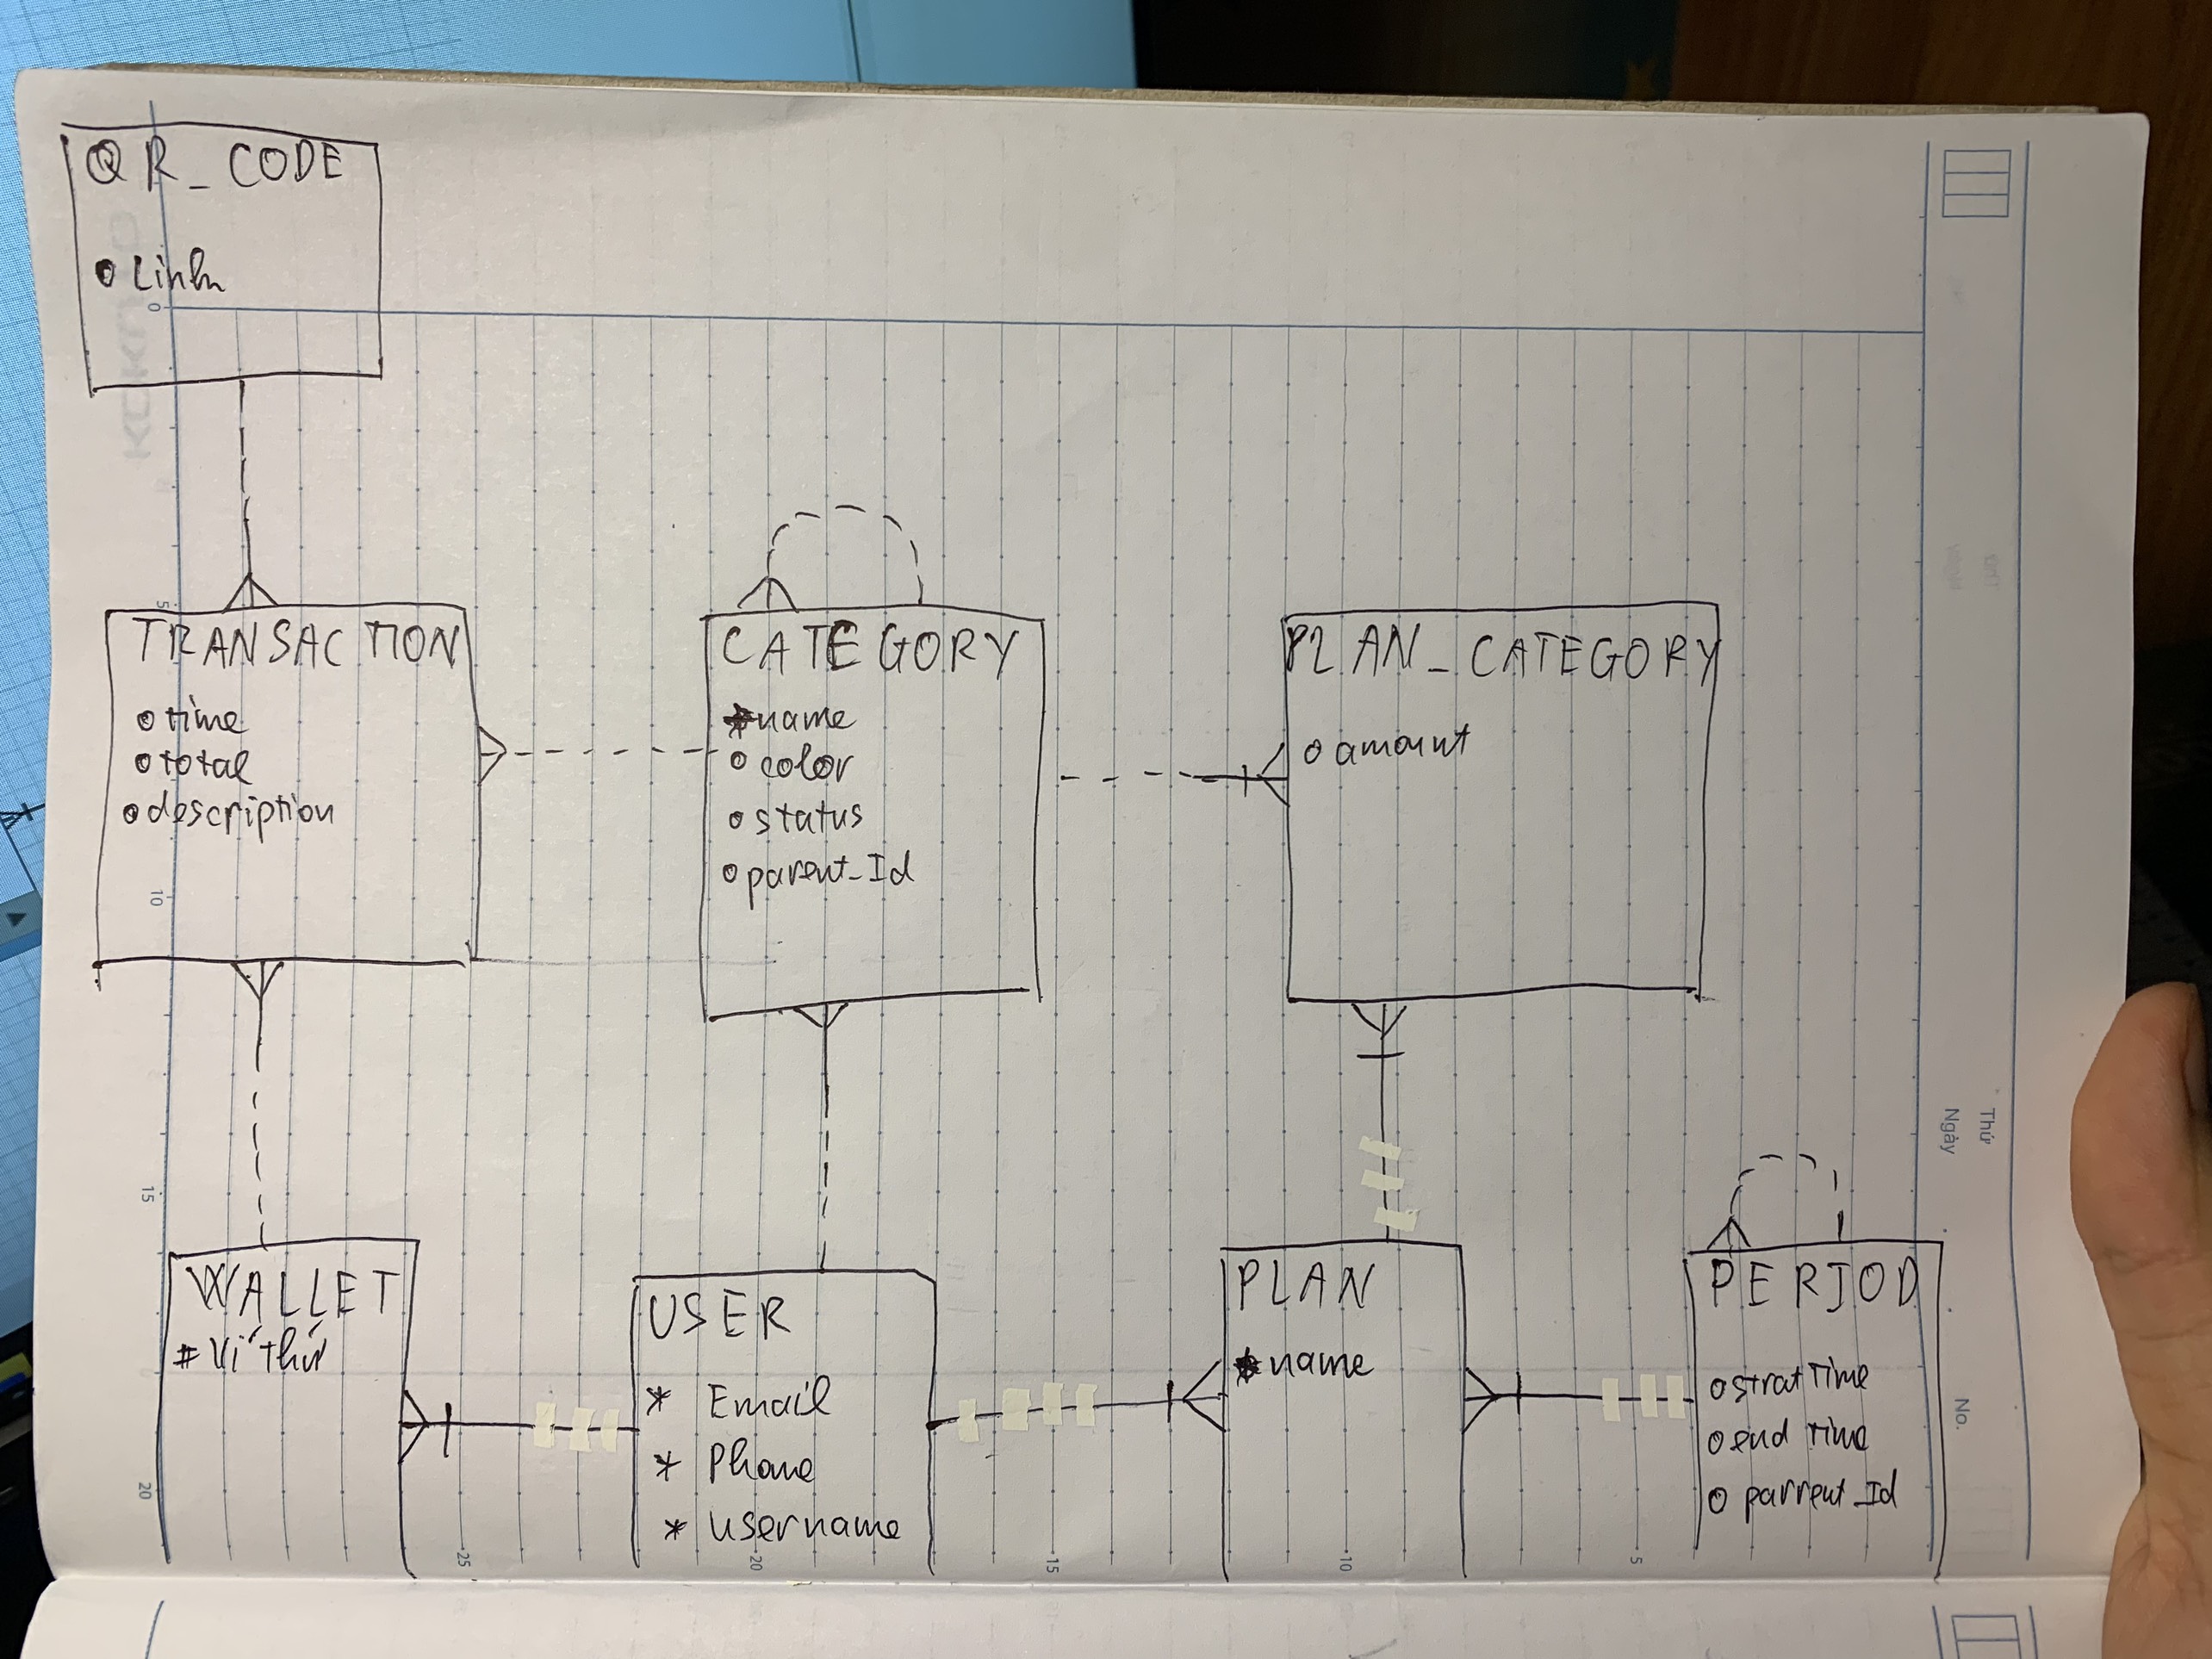 QR_CODE
o Link
TRANSACTION
o time
o total
o description
CATEGORY
* name
o color
o status
o parent_Id
PLAN_CATEGORY
o amount
WALLET
# Ví thứ
USER
* Email
* Phone
* username
PLAN
* name
PERIOD
o stratTime
o end Time
o parrent_Id
Thứ
Ngày
No.
0
5
10
15
20
25
20
15
10
5